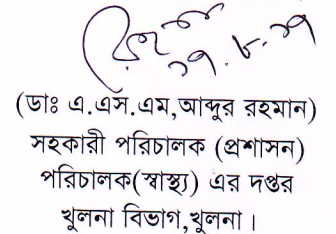 ২৭.৮.২৭
(ডাঃ এ.এস.এম,আব্দুর রহমান)
সহকারী পরিচালক (প্রশাসন)
পরিচালক(স্বাস্থ্য) এর দপ্তর
খুলনা বিভাগ,খুলনা।